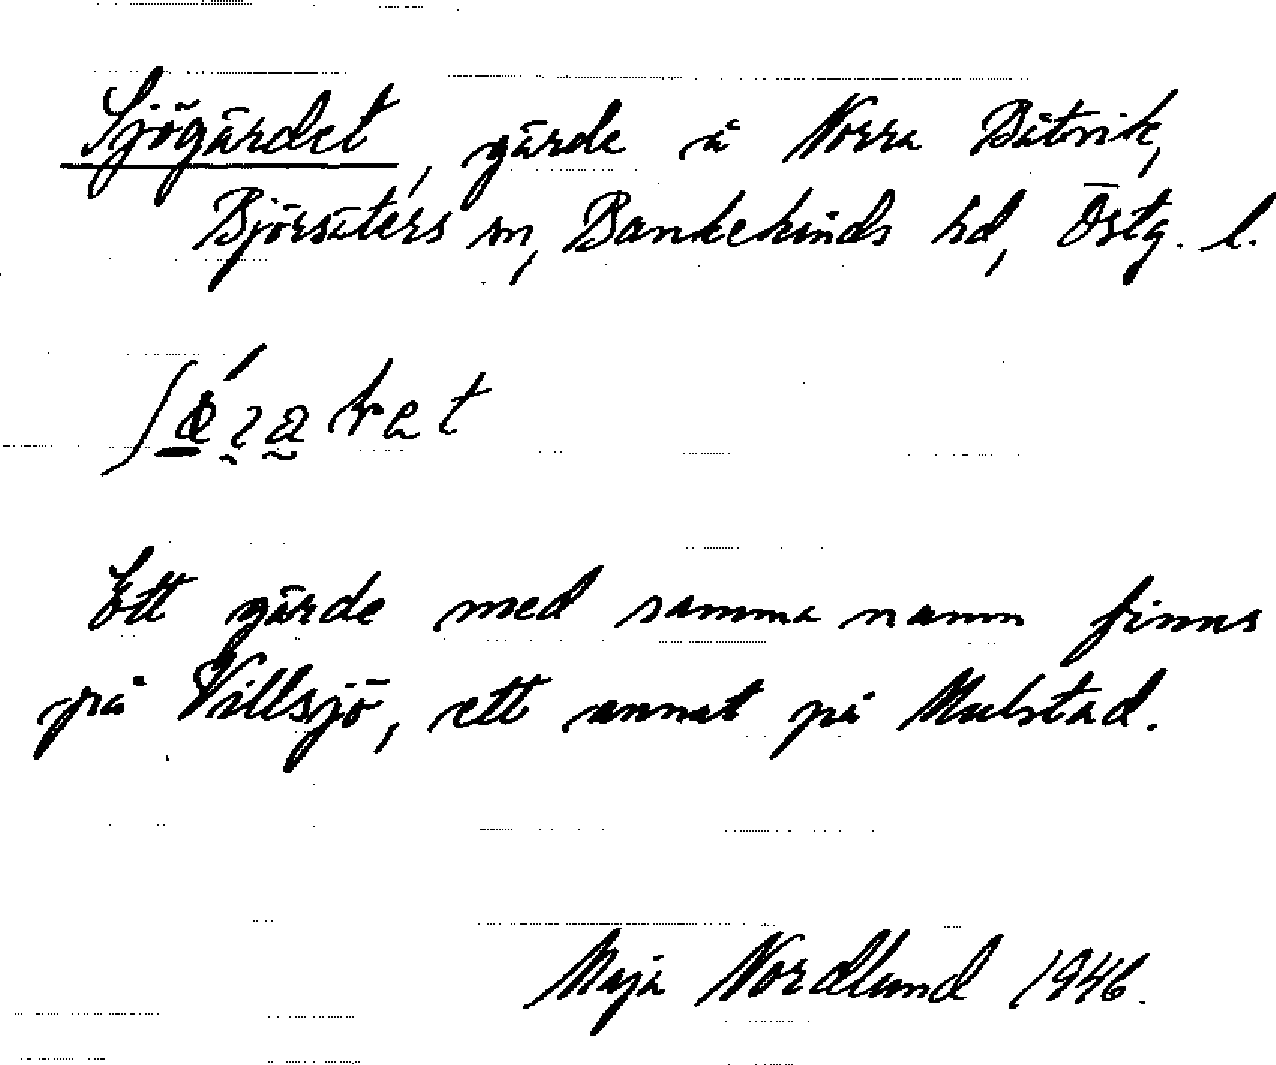 Sjögärdet, gärde å Norra Båtvik,
Björsäters sn, Bankekinds hd, Östg. l.
Ett gärde med samma namn finns
på Villsjö, ett annat på Mulstad.
Maja Nordlund 1946.